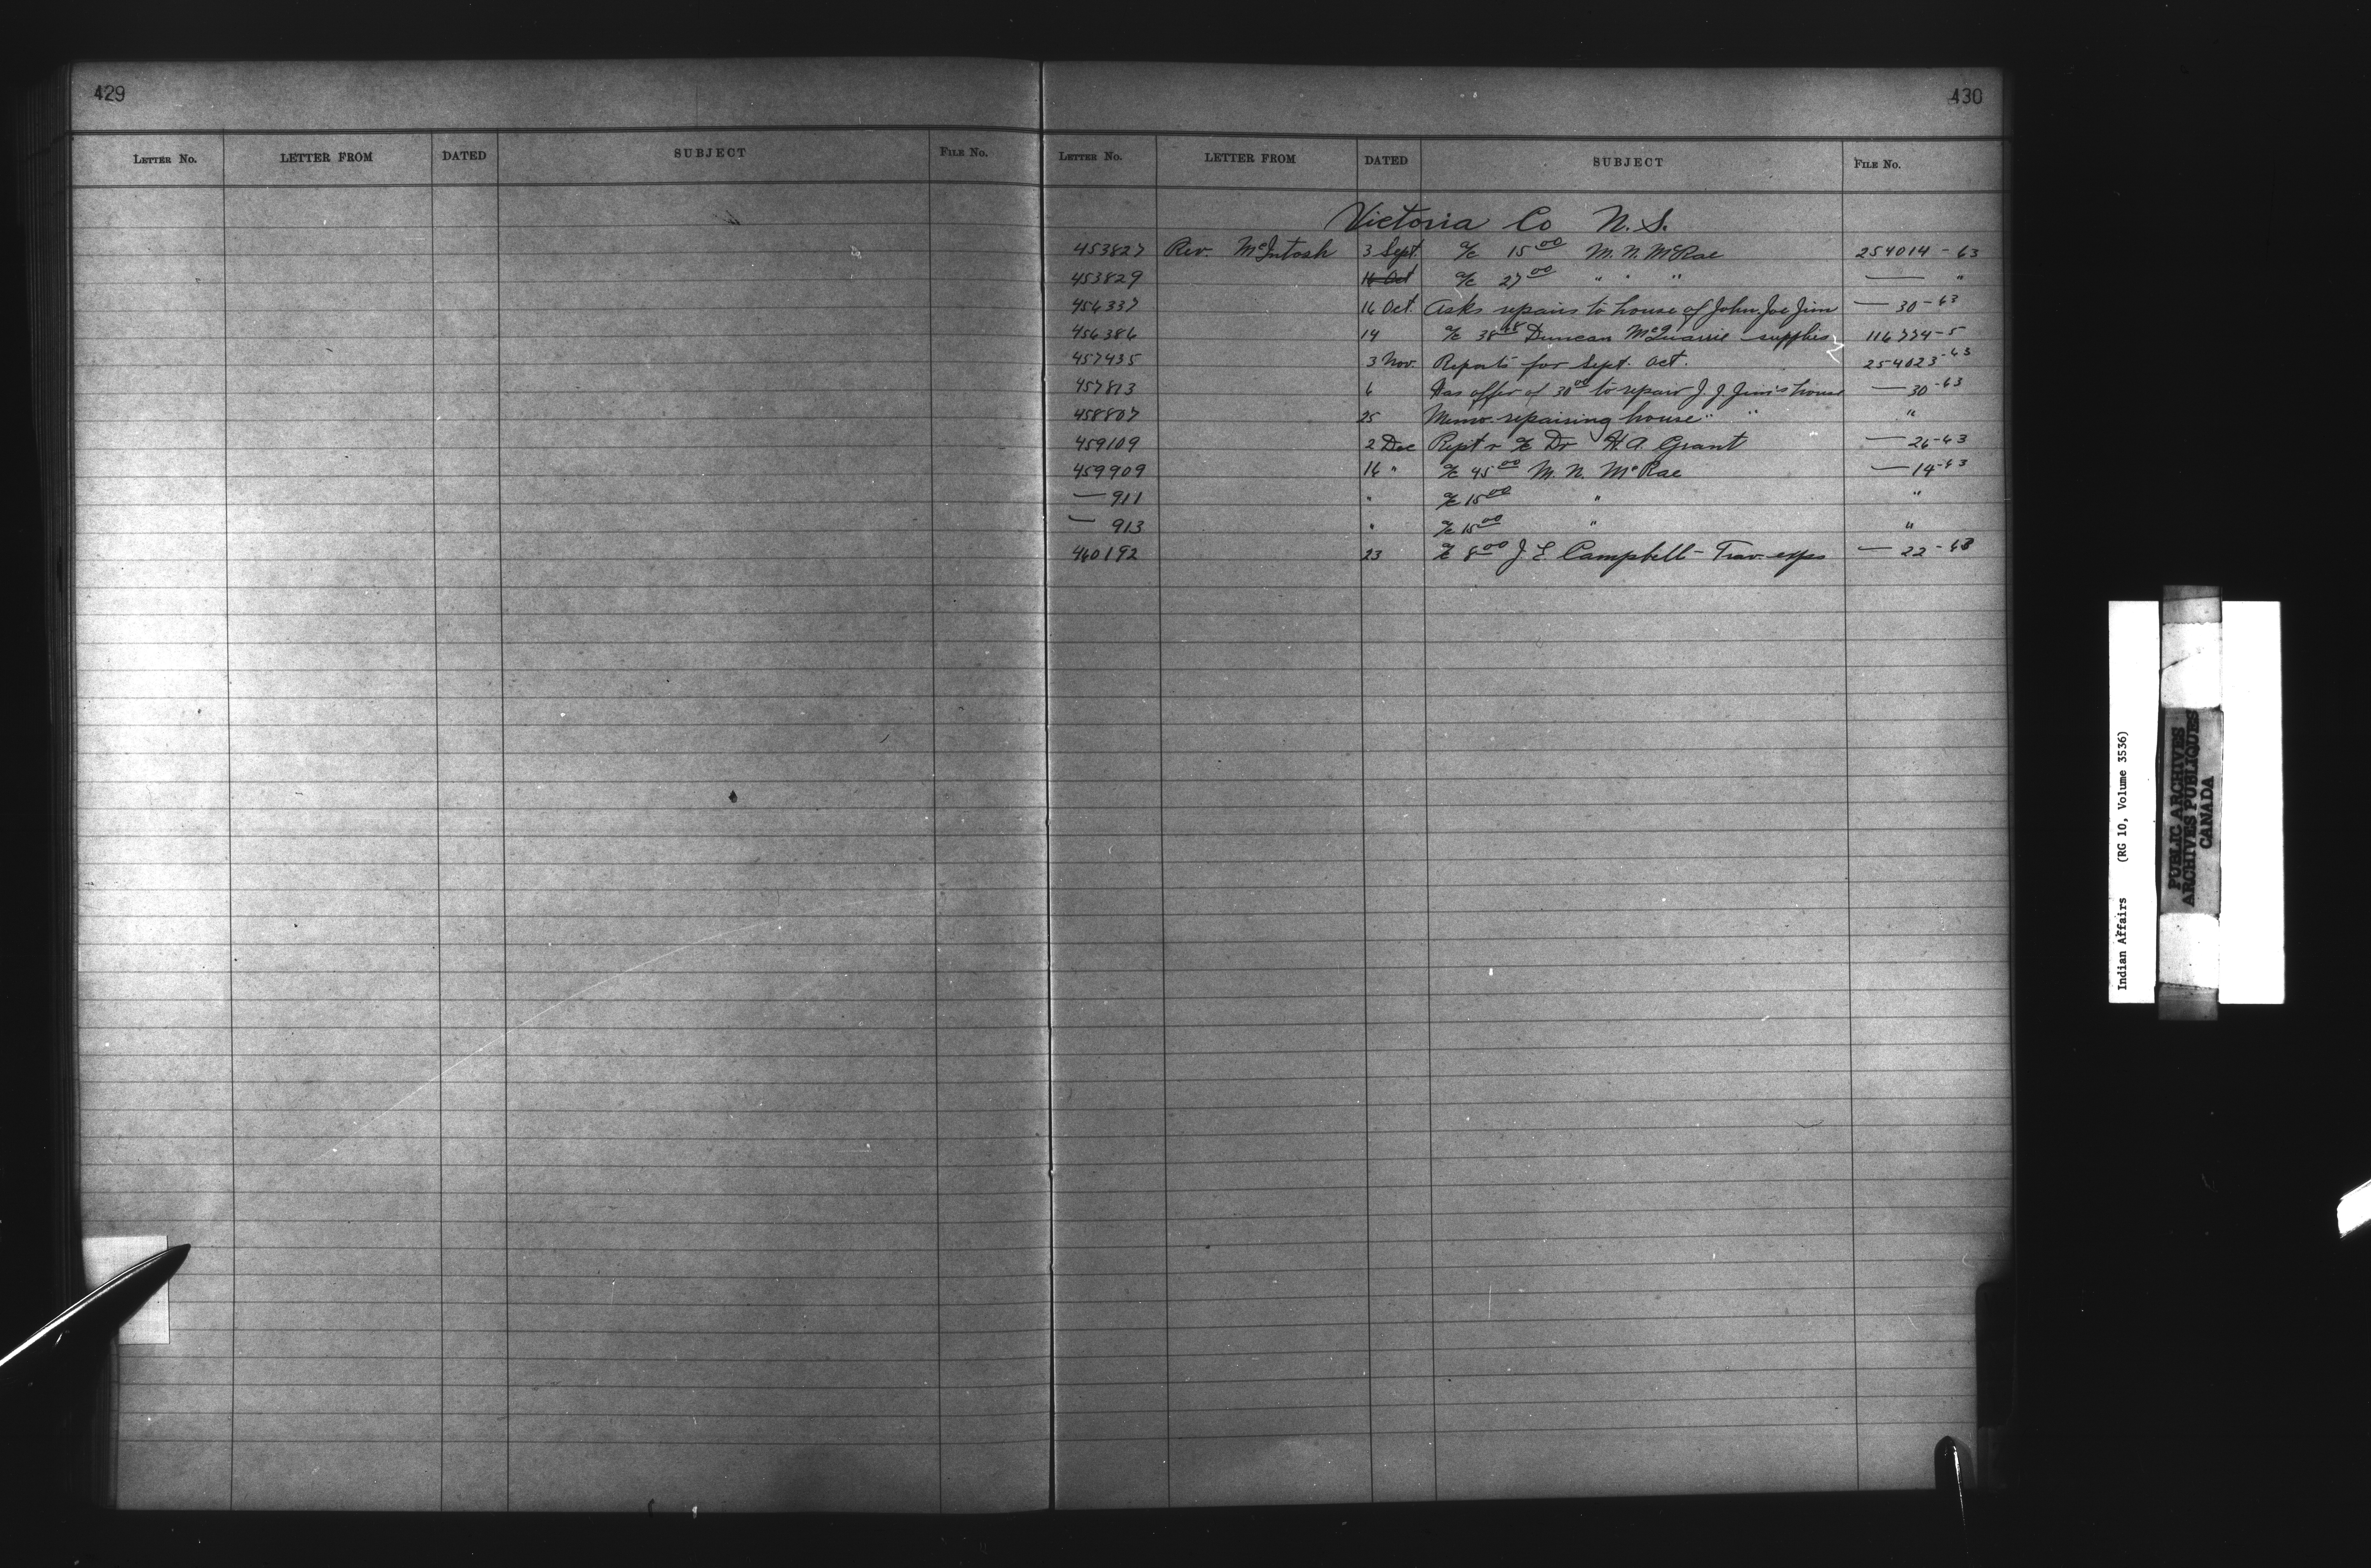 429
LETTER NO. LETTER FROM DATED SUBJECT FILE NO.
430
LETTER NO. LETTER FROM DATED SUBJECT FILE NO.
Victoria Co N. S.
453827 Rev. McIntosh 3 Sept. a/c 15 00 M. N. McRae 254014-63
453829 16 Oct a/c 27 00 " " " — "
456337 16 Oct. Asks repairs to house of John Joe Jim — 30-63
456386 14 a/c 38 48 Duncan McQuarrie supplies 116774-5
457435 3 Nov. Reports for Sept. Oct. 254023-63
457813 6 Has offer of 30 00 to repair J. J. Jim's house — 30-63
458807 25 Memo. repairing house " " "
459109 2 Dec Rept r a/c Dr H. A. Grant — 26-63
459909 16 " a/c 45 00 M. N. McRae — 14-63
— 911 " a/c 15 00 " "
— 913 " a/c 15 00 " "
460192 23 a/c 8 00 J. L. Campbell - Trav. exps — 22-63
Indian Affairs (RG 10, Volume 3536)
PUBLIC ARCHIVES
ARCHIVES PUBLIQUES
CANADA